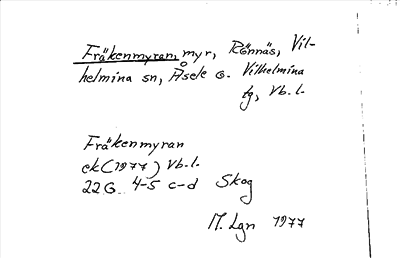 Fräkenmyran, myr, Rönnäs, Vil-
helmina sn, Åsele o. Vilhelmina
tg, Vb. l.
Fräkenmyran
ek (1977) Vb. l.
22G 4-5 c-d Skog
M. Lgn 1977